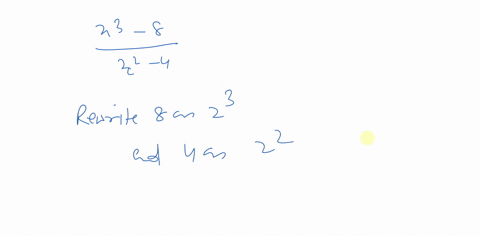 x³ - 8
x² - 4
Rewrite 8 as 2³
and 4 as 2²